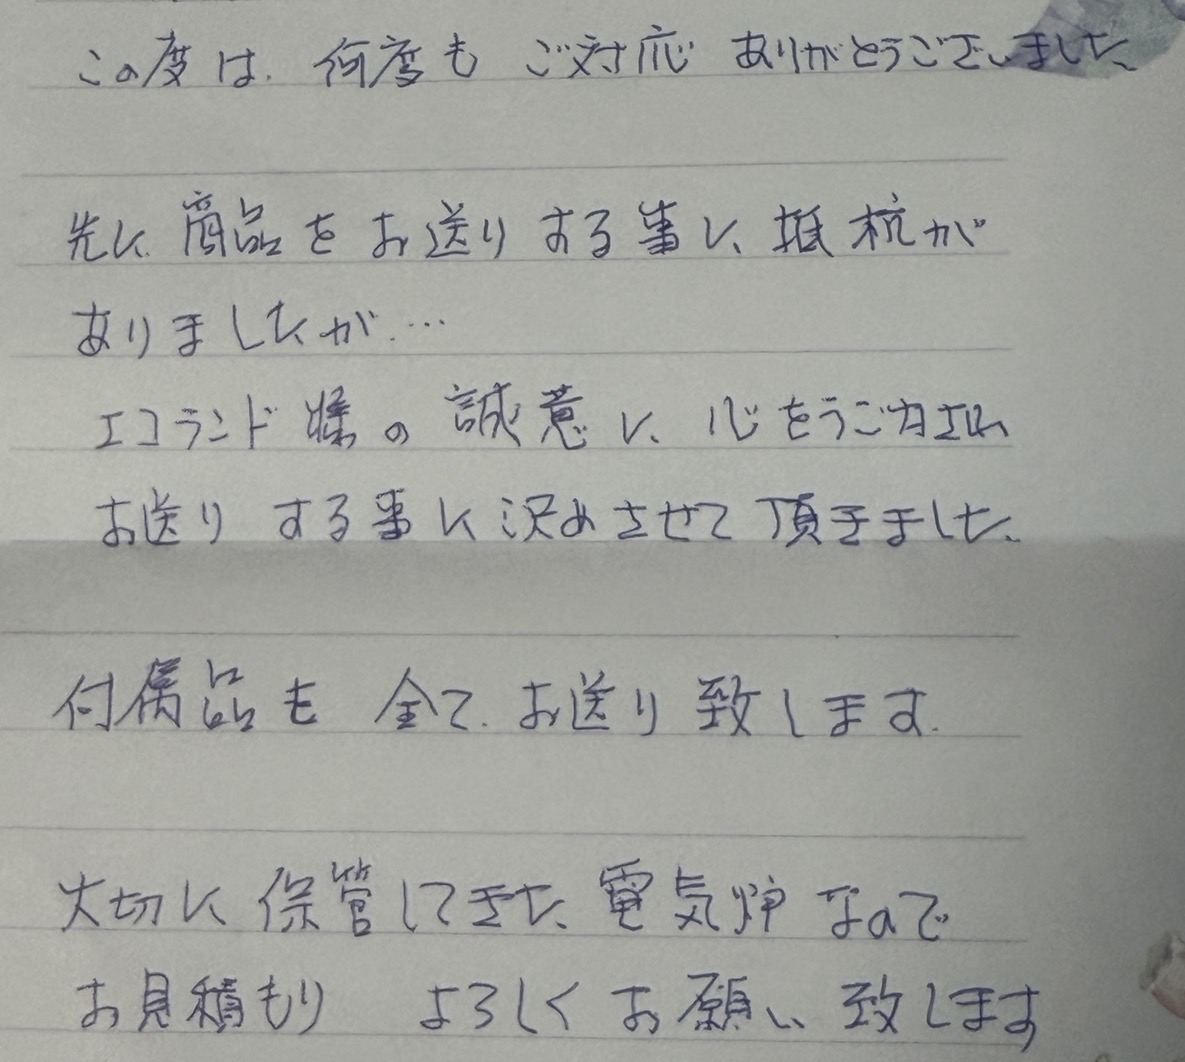 この度は、何度も ご対応 ありがとうございました
先に商品をお送りする事に抵抗が
ありましたが…
エコランド様の誠意に、心をうごかされ
お送りする事に決めさせて頂きました、
付属品も 全て、お送り致します.
大切に保管してきた電気炉なので
お見積もり よろしくお願い致します